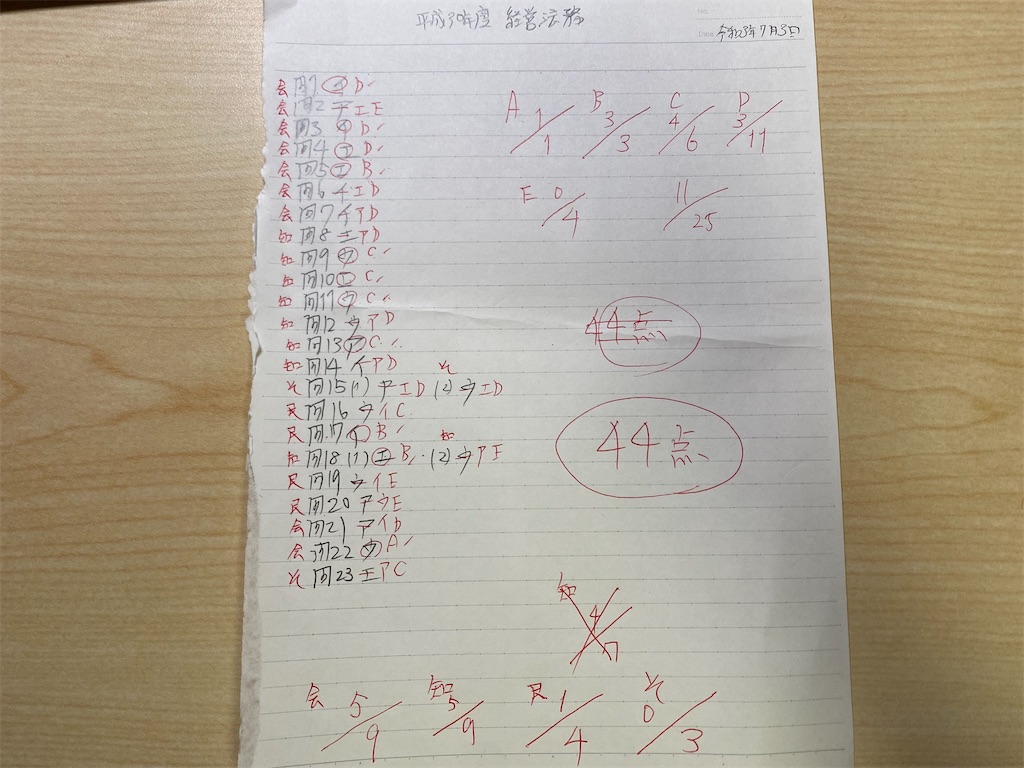 平成30年度 経営法務
No.
Date 令和3年7月3日
会 問1 イ D✓
会 問2 ア エ E
会 問3 イ D✓
会 問4 エ D✓
会 問5 エ B✓
会 問6 イ エ D
会 問7 イ ア D
知 問8 エ ア D
知 問9 ウ C✓
知 問10 エ C✓
知 問11 ウ C✓
知 問12 ウ ア D
知 問13 ア C✓
知 問14 イ ア D
そ 問15 (1) ア エ D そ (2) ウ エ D
民 問16 ウ イ C
民 問17 イ B✓
知 問18 (1) エ B✓ 知 (2) ウ ア E
民 問19 ウ イ E
民 問20 ア ウ E
会 問21 ア イ D
会 問22 ウ A✓
そ 問23 エ ア C
A 1/1 B 3/3 C 4/6 D 3/11
E 0/4 11/25
44点
44点
知 4/7
会 5/9 知 5/9 民 1/4 そ 0/3